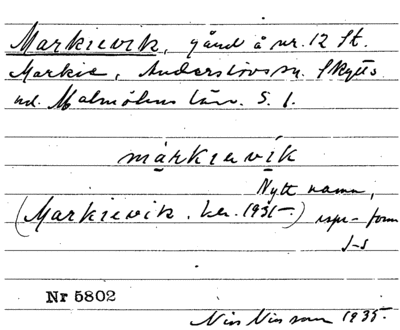 Markievik, gård å nr. 12 St.
Markie, Anderslövs sn. Skytts
hd. Malmöhus län. S. 1.
márkiavìk
Nytt namn,
(Markievik. ker. 1935.) rspr-form
J-s
Nr 5802
Nils Nilsson 1935.